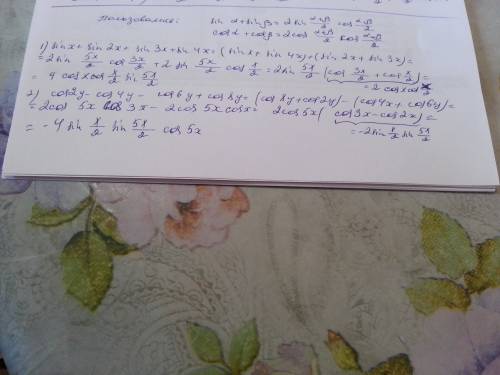 Пользование: sin α + sin β = 2 sin (α+β)/2 cos (α±β)/2
cos α + cos β = 2 cos (α±β)/2 cos (α±β)/2
1) sin x + sin 2x + sin 3x + sin 4x = (sin x + sin 4x) + (sin 2x + sin 3x) =
= 2 sin 5x/2 cos 3x/2 + 2 sin 5x/2 cos x/2 = 2 sin 5x/2 (cos 3x/2 + cos x/2) =
= 2 cos x cos x/2
= 4 cos x cos x/2 sin 5x/2
2) cos 2y - cos 4y - cos 6y + cos 8y = (cos 8y + cos 2y) - (cos 4x + cos 6y) =
= 2 cos 5x cos 3x - 2 cos 5x cos x = 2 cos 5x (cos 3x - cos 2x) =
= -2 sin x/2 sin 5x/2
= -4 sin x/2 sin 5x/2 cos 5x